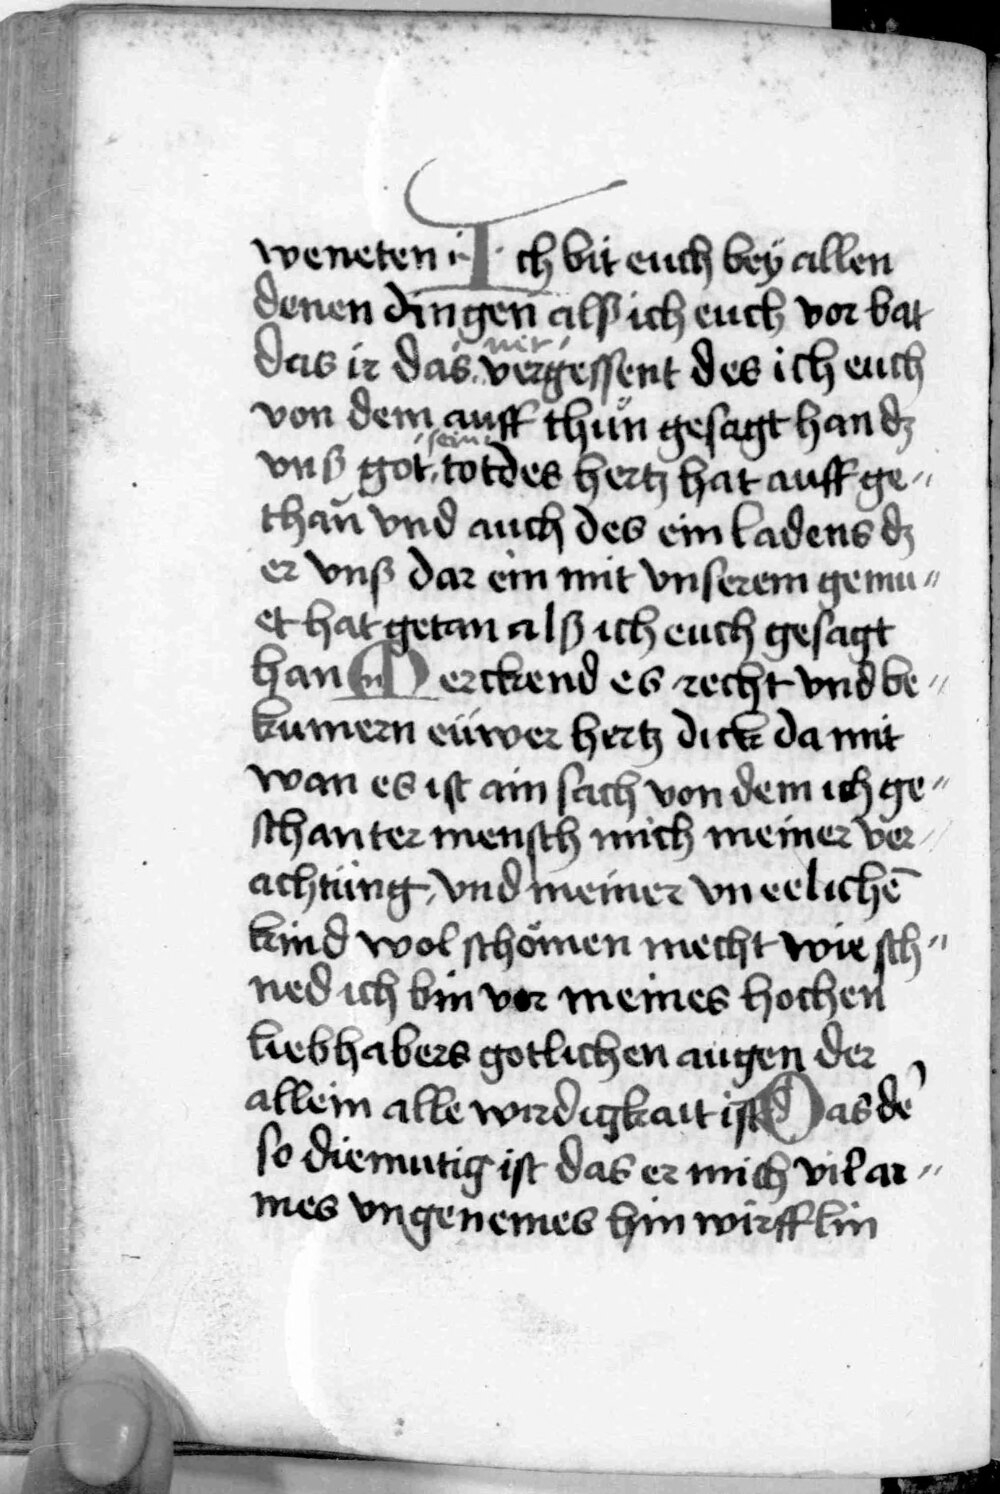 weneten Ich bit euch beÿ allen
denen dingen alß ich euch vor bat
das ir das nit vergessent des ich euch
von dem auff thůn gesagt han dz
vnß got sein totdes hertz hat auff ge〃
than̄ vnd auch des ein ladens dz
er vnß dar ein mit vnserem gemu〃
et hat getan alß ich euch gesagt
han Merckend es recht vnd be〃
kumern eüwer hertz dick da mit
wan es ist ain sach von dem ich ge〃
schanter mensch mich meiner ver〃
achtüng vnd meiner vneelichē
kind wol schömen mecht wie sch〃
ned ich bin vor meines hochen
liebhabers gotlichen augen der
allein alle wirdigkait ist Das de
so diemutig ist das er mich vil ar〃
mes vngenemes hin wirfflin